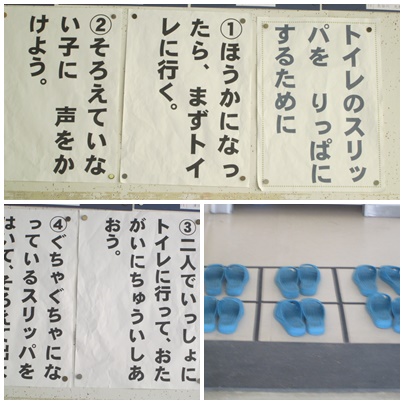 トイレのスリッ
パを りっぱに
するために
①ほうかになっ
たら、まずトイ
レに行く。
②そろえていな
い子に 声をか
けよう。
③二人でいっしょに
トイレに行って、おた
がいにちゅういしあ
おう。
④ぐちゃぐちゃにな
っているスリッパを
はいて、そろえて出